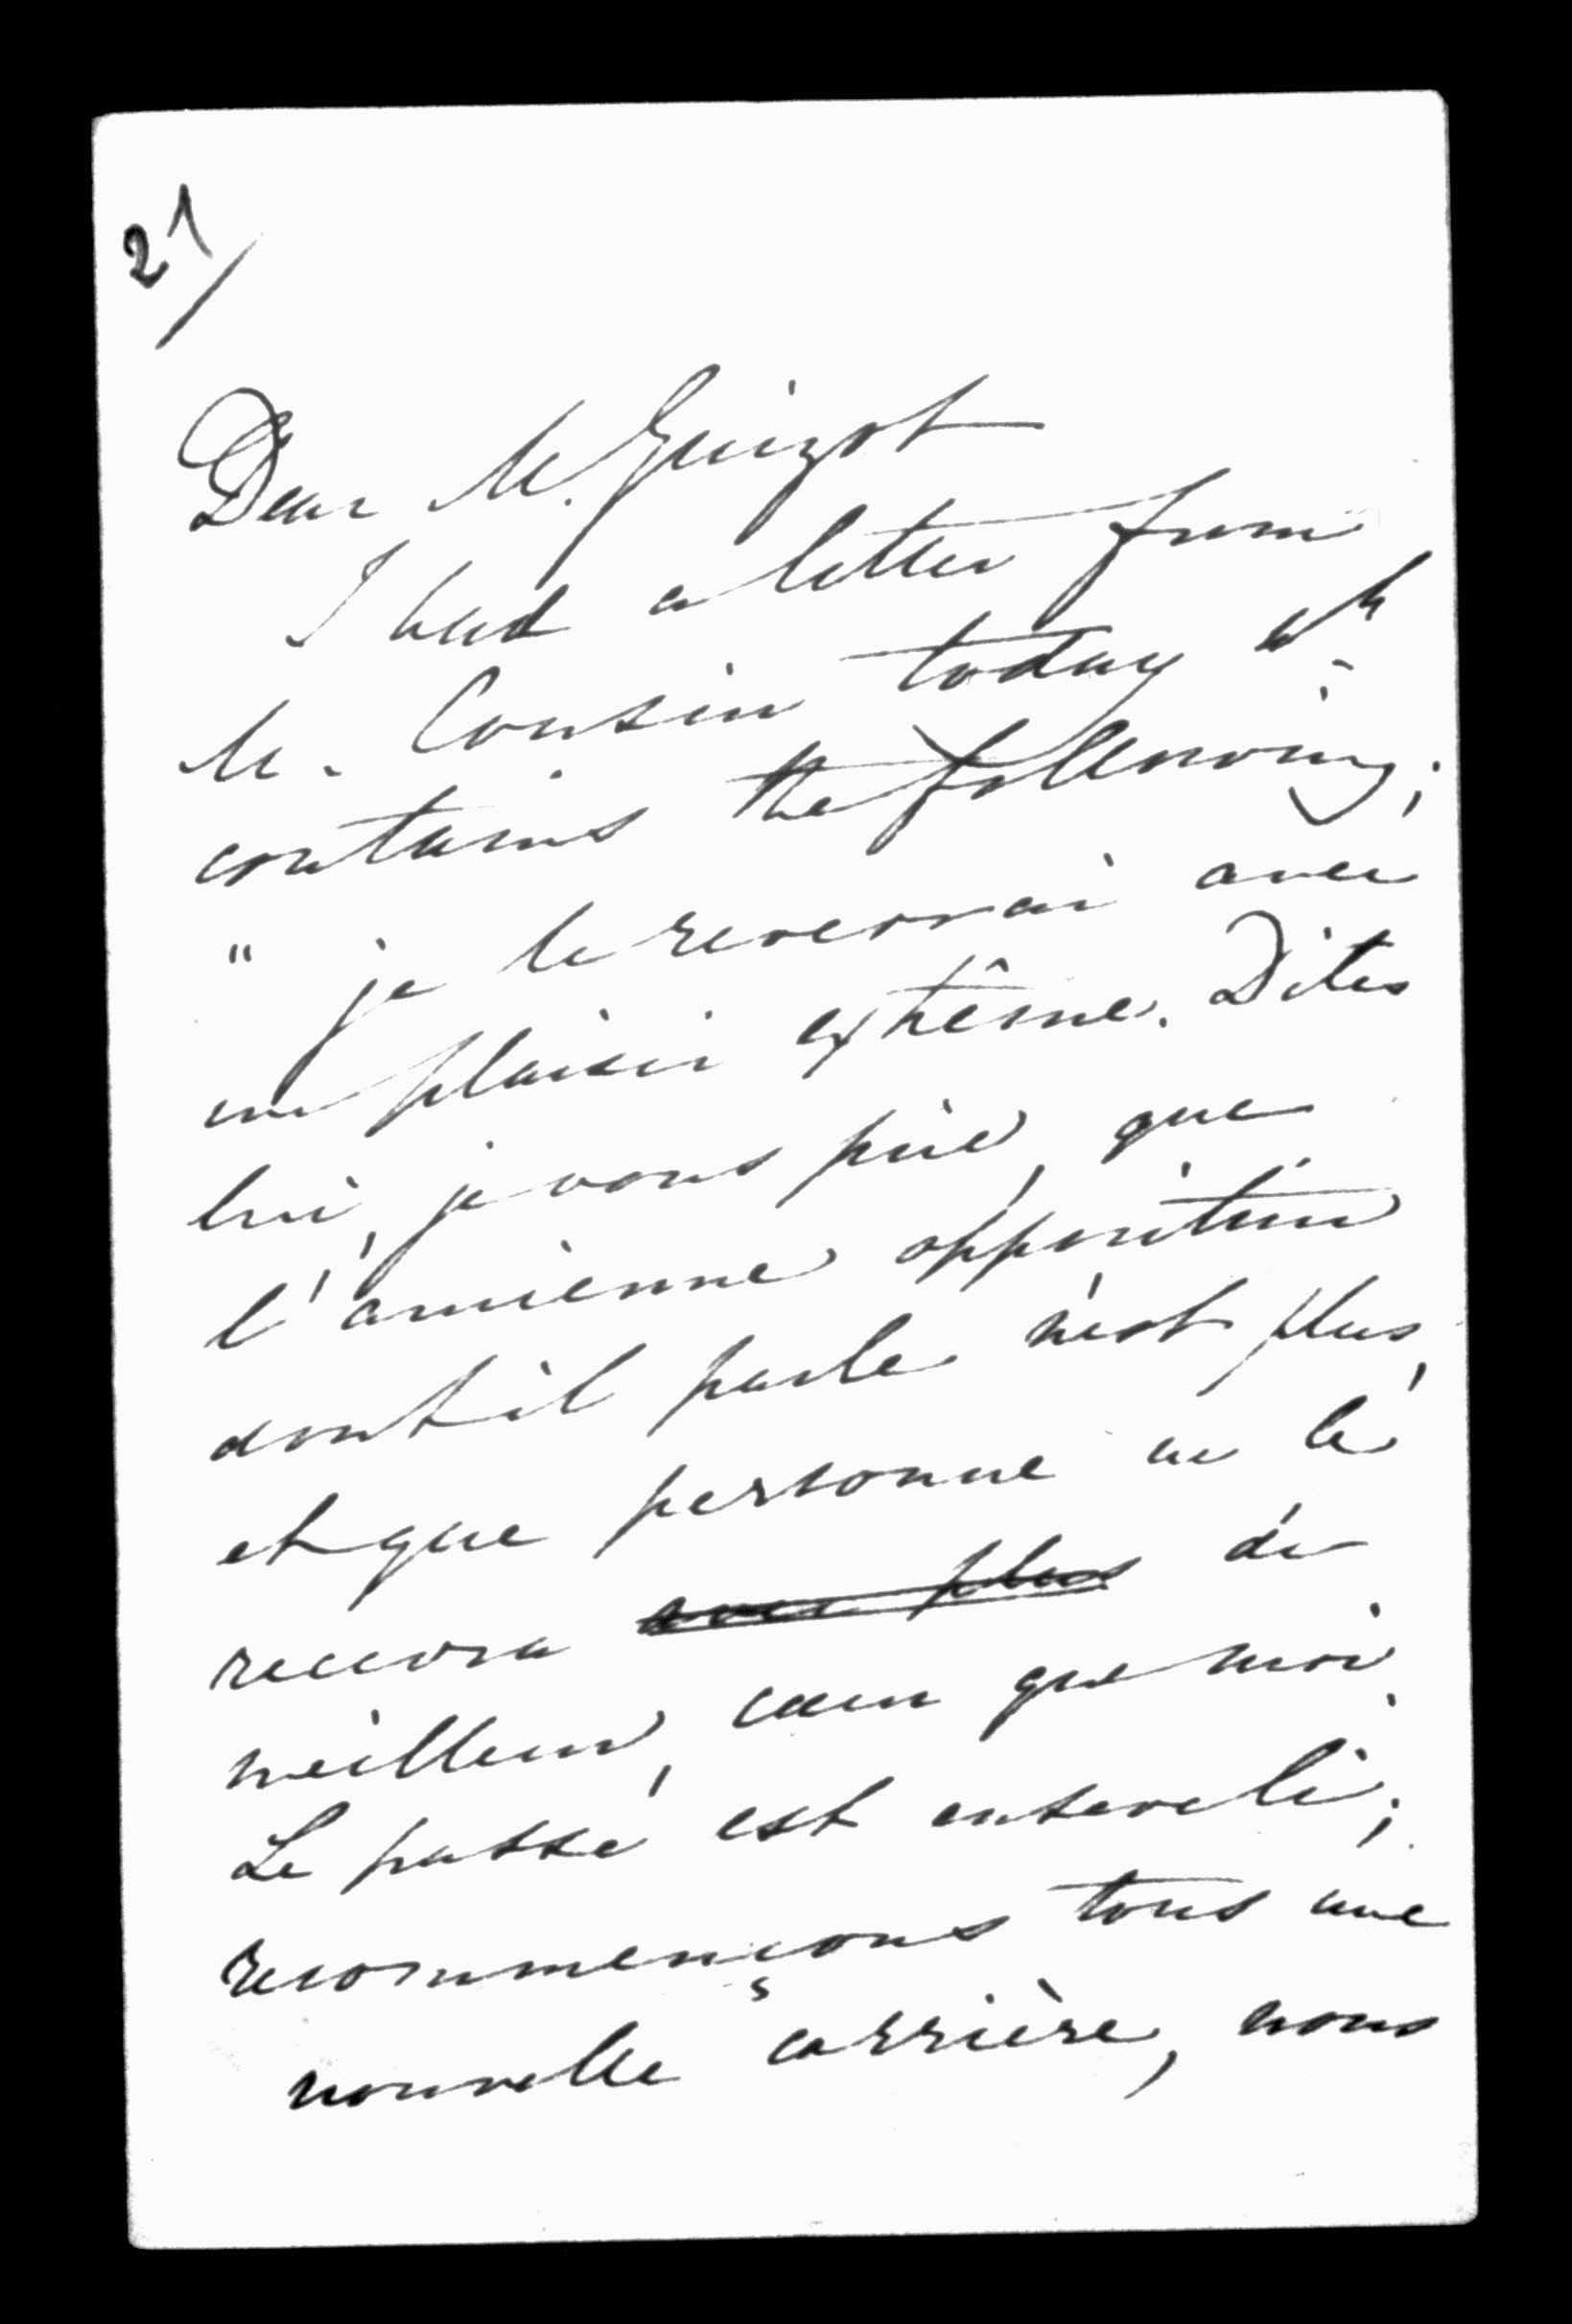 21/
Dear M. Guizot
I had a letter from
M. Cousin today wh
contains the following;
" je le recevrai avec
un plaisir extrême. Dites
lui, je vous prie, que
l'ancienne opposition
dont il parle n'est plus,
et que personne ne le
recevra avec plus de
meilleur, cœur que moi
Le passé est enseveli;
recommençons tous une
nouvelle carrière, nous